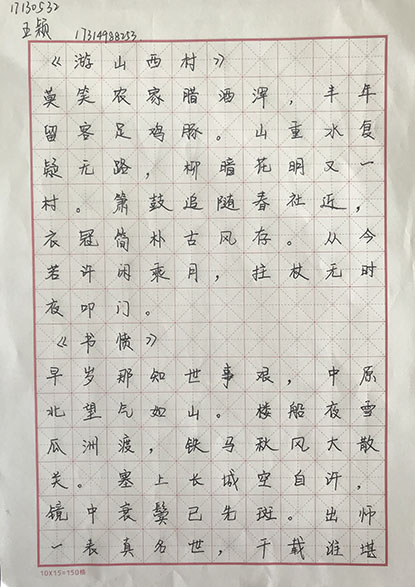 17130532
王颖 17314988253
《游山西村》
莫笑农家腊酒浑，丰年
留客足鸡豚。山重水复
疑无路，柳暗花明又一
村。箫鼓追随春社近，
衣冠简朴古风存。从今
若许闲乘月，拄杖无时
夜叩门。
《书愤》
早岁那知世事艰，中原
北望气如山。楼船夜雪
瓜洲渡，铁马秋风大散
关。塞上长城空自许，
镜中衰鬓已先斑。出师
一表真名世，千载谁堪
10X15=150格